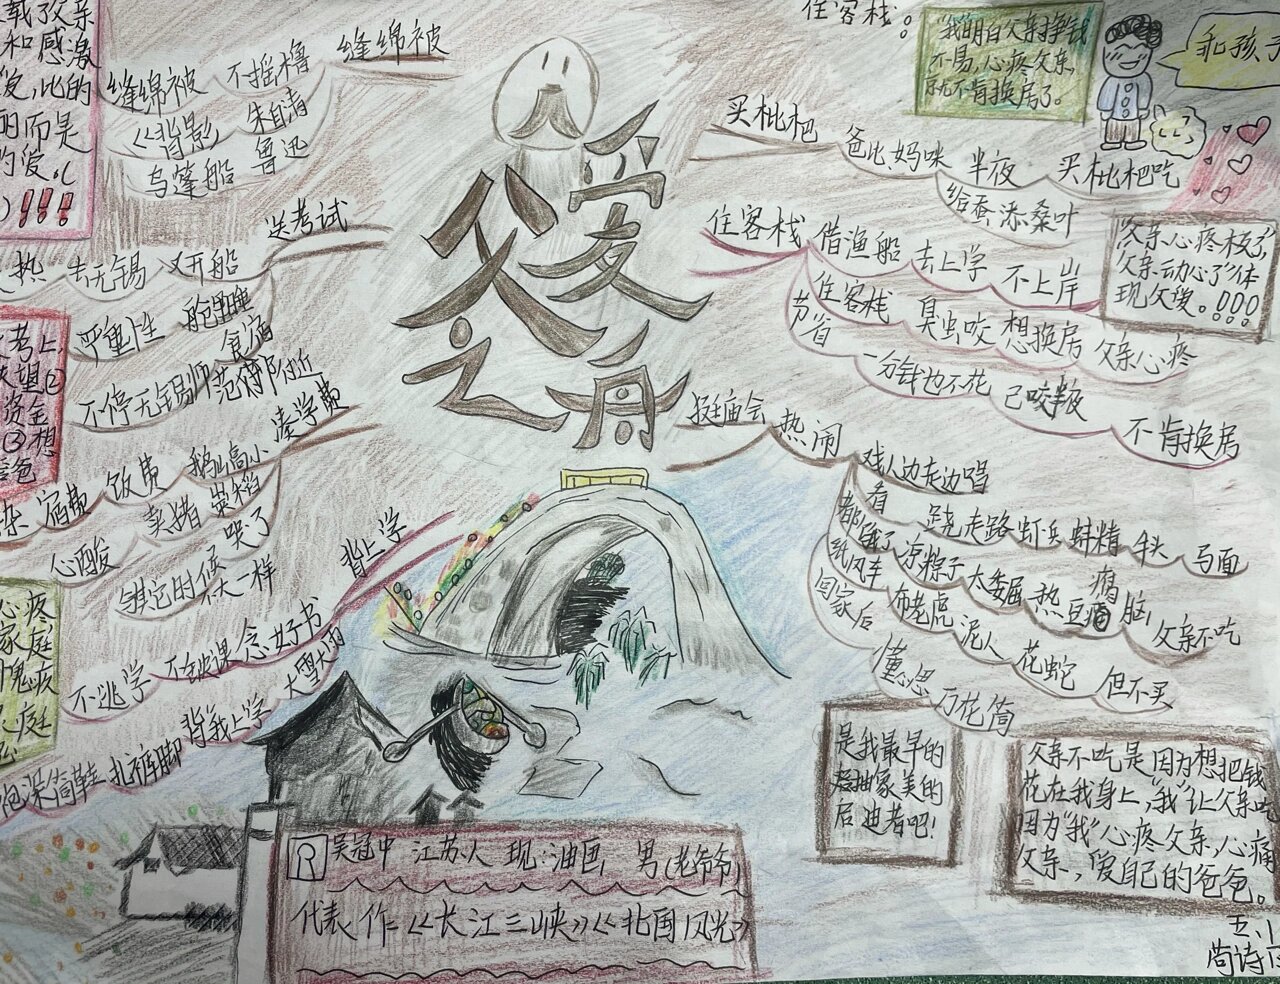 父爱之舟
载孜亲
和感激
爱,此的
的而是
的爱。(
)!!!
缝绵被
缝绵被 不摇橹
《背影》 朱自清
乌蓬船 鲁迅
送考试
热 去无锡 又开船
严重性 舱里睡
食宿
不停无锡师范附近
凑学费
宿费 饭费 鹅山高小
心酸 卖猪 粜稻
哭了
铺其它时候不大一样
背上学
不逃学 不缺课 念好书
大雪大雨
背我上学
扎裤脚
考上,
失望②
资金
③想
爸
心疼
家庭
愧疚
庭
住客栈。
"我"明白父亲挣钱
不易,心疼父亲,
就不肯换房了。
和孩子
买枇杷
爸比、妈咪 半夜 买枇杷吃
给蚕添桑叶
住客栈 借渔船 去上学 不上岸
住客栈 臭虫咬 想换房 父亲心疼
节省 一分钱也不花 已咬半夜 不肯换房
"父亲心疼极了,
父亲动心了"体
现父爱。!!!
逛庙会 热闹 戏人边走边唱
看 跷走路 虾兵 蚌精 牛头 马面
都饿了 凉粽子 太委屈 热豆腐脑 父亲不吃
纸风车 布老虎 泥人 花蛇 但不买
回家后 懂思 万花筒
是我最早的
抽象美的
启迪者吧!
父亲不吃是因为想把钱
花在我身上,"我"让父亲吃
因为"我"心疼父亲,心痛
父亲,爱自己的爸爸。
吴冠中 江苏人 现:油画 男(老爷爷)
代表作=《长江三峡》《北国风光》
五、1
尚诗